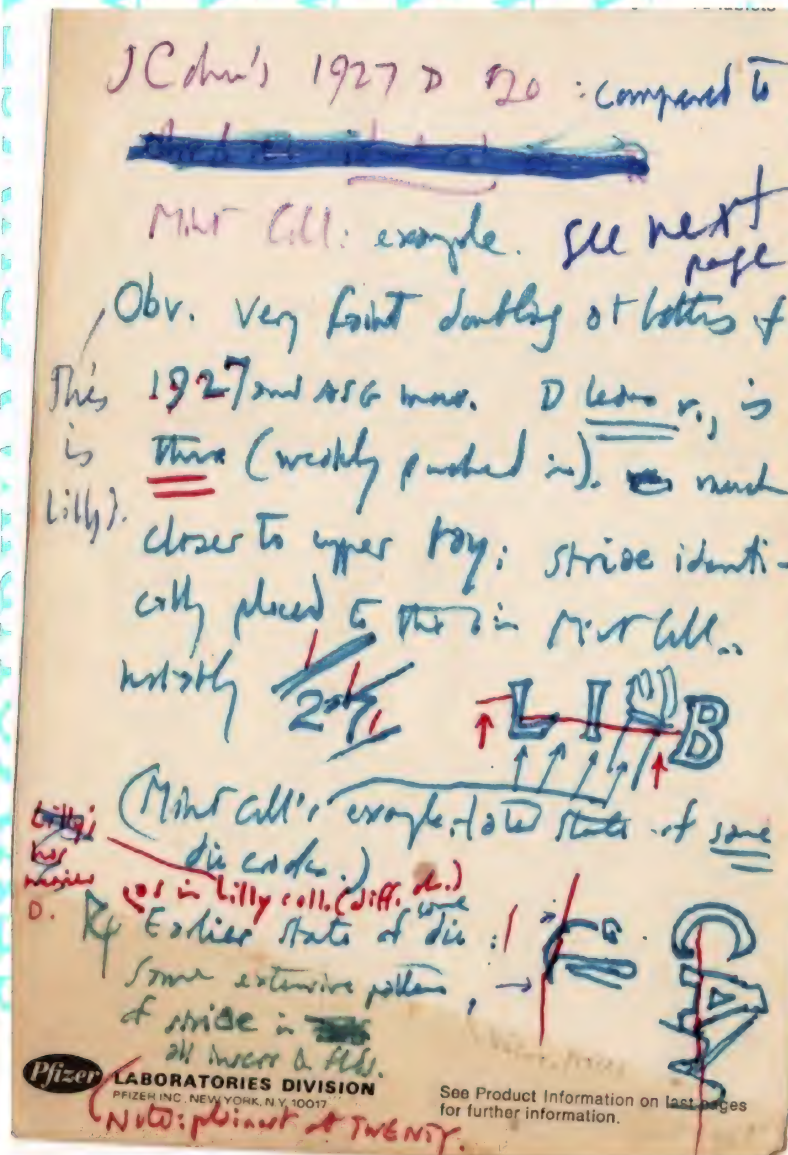 J Cohn's 1927 D $20 : compared to
Mint Coll: example. See next
page
Obv. Very faint doubling at bottoms of
This
is
Lilly).
1927 and ASG mono. D leans r., is
thin (weakly punched in). much
closer to upper ray; striae identi-
cally placed to those in Mint Coll..
notably
27
L I B
(Mint Coll's example, later state of same
die cracks.)
Lilly's
has
D.
as in Lilly coll. (diff. obv.)
Rev Earlier state of same die :
Same extensive pattern
of striae in
all inscr & flds.
CAN
Pfizer LABORATORIES DIVISION
PFIZER INC., NEW YORK, N.Y. 10017
See Product Information on last pages
for further information.
Note: plainest at TWENTY.